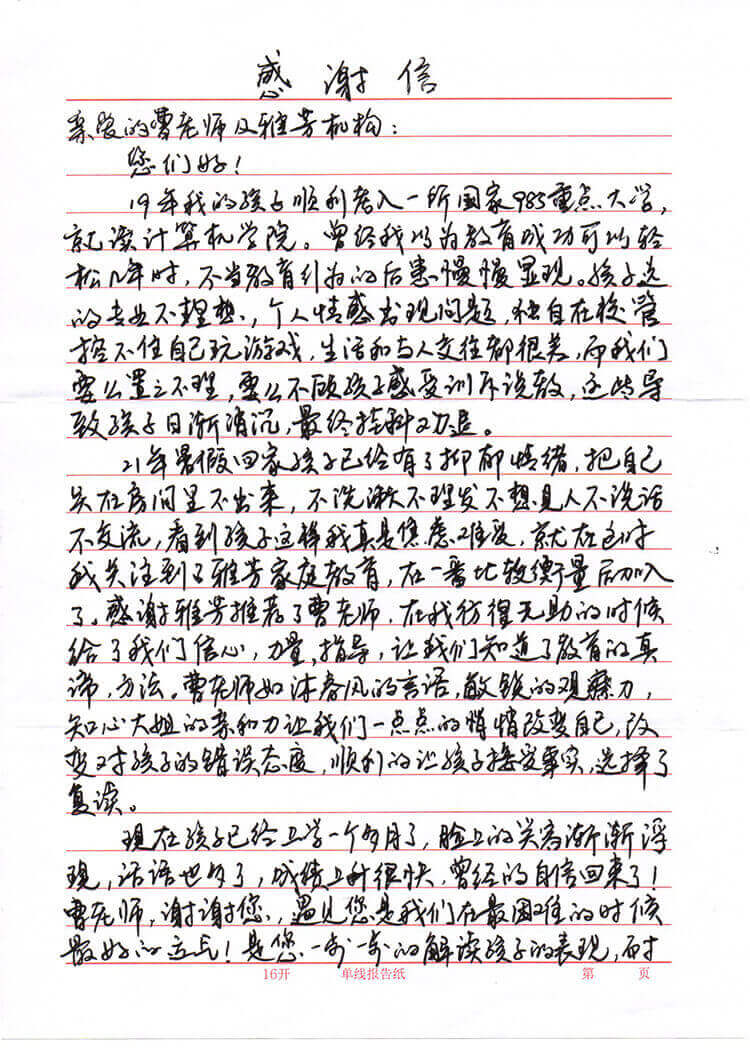 感谢信
亲爱的曹老师及雅芳机构：
您们好！
19年我的孩子顺利考入一所国家985重点大学，
就读计算机学院。曾经我以为教育成功可以轻
松几年时，不当教育行为的后患慢慢显现。孩子选
的专业不理想，个人情感出现问题，独自在校管
控不住自己玩游戏，生活和与人交往都很差，而我们
要么置之不理，要么不顾孩子感受训斥说教，这些导
致孩子日渐消沉，最终挂科劝退。
21年暑假回家孩子已经有了抑郁情绪，把自己
关在房间里不出来，不洗漱不理发不想见人不说话
不交流，看到孩子这样我真是焦虑难受，就在这时
我关注到了雅芳家庭教育，在一番比较衡量后加入
了。感谢雅芳推荐了曹老师，在我彷徨无助的时候
给了我们信心，力量，指导，让我们知道了教育的真
谛，方法。曹老师如沐春风的言语，敏锐的观察力，
知心大姐的亲和力让我们一点点的悄悄改变自己，改
变对孩子的错误态度，顺利的让孩子接受事实，选择了
复读。
现在孩子已经上学一个多月了，脸上的笑容渐渐浮
现，话语也多了，成绩上升很快，曾经的自信回来了！
曹老师，谢谢您，遇见您是我们在最困难的时候
最好的运气！是您一步一步的解读孩子的表现，而对
16开 单线报告纸 第 页